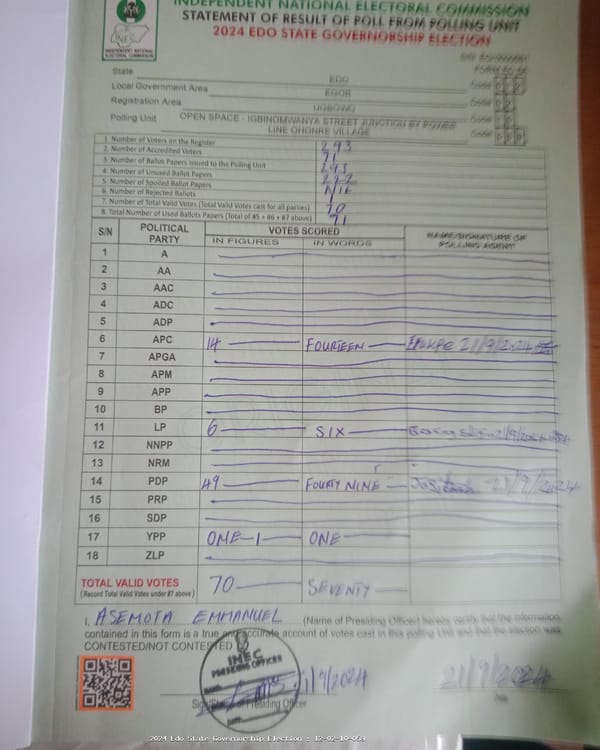 INDEPENDENT NATIONAL ELECTORAL COMMISSION
STATEMENT OF RESULT OF POLL FROM POLLING UNIT
2024 EDO STATE GOVERNORSHIP ELECTION
INEC
INDEPENDENT NATIONAL
ELECTORAL COMMISSION
State EDO
Local Government Area EGOR Code
Registration Area UGBOWO Code
Polling Unit OPEN SPACE - IGBINOMWANYA STREET JUNCTION BY POWER LINE OHONRE VILLAGE Code
1. Number of Voters on the Register 293
2. Number of Accredited Voters 71
3. Number of Ballot Papers issued to the Polling Unit 293
4. Number of Unused Ballot Papers 222
5. Number of Spoiled Ballot Papers Nil
6. Number of Rejected Ballots 1
7. Number of Total Valid Votes (Total Valid Votes cast for all parties) 70
8. Total Number of Used Ballots Papers (Total of #5 + #6 + #7 above) 71
S/N POLITICAL PARTY VOTES SCORED NAME/SIGNATURE OF POLLING AGENT
IN FIGURES IN WORDS
1 A
2 AA
3 AAC
4 ADC
5 ADP
6 APC 14 FOURTEEN 21/9/2024
7 APGA
8 APM
9 APP
10 BP
11 LP 6 SIX
12 NNPP
13 NRM
14 PDP 49 FOURTY NINE 21/9/2024
15 PRP
16 SDP
17 YPP ONE-1 ONE
18 ZLP
TOTAL VALID VOTES 70 SEVENTY
(Record Total Valid Votes under #7 above)
I, ASEMOTA EMMANUEL (Name of Presiding Officer) hereby certify that the information
contained in this form is a true and accurate account of votes cast in this polling Unit and that the election was
CONTESTED/NOT CONTESTED
INEC
PRESIDING OFFICER
21/9/2024 21/9/2024
Signature of Presiding Officer
2024 Edo State Governorship Election : 12-02-10-059